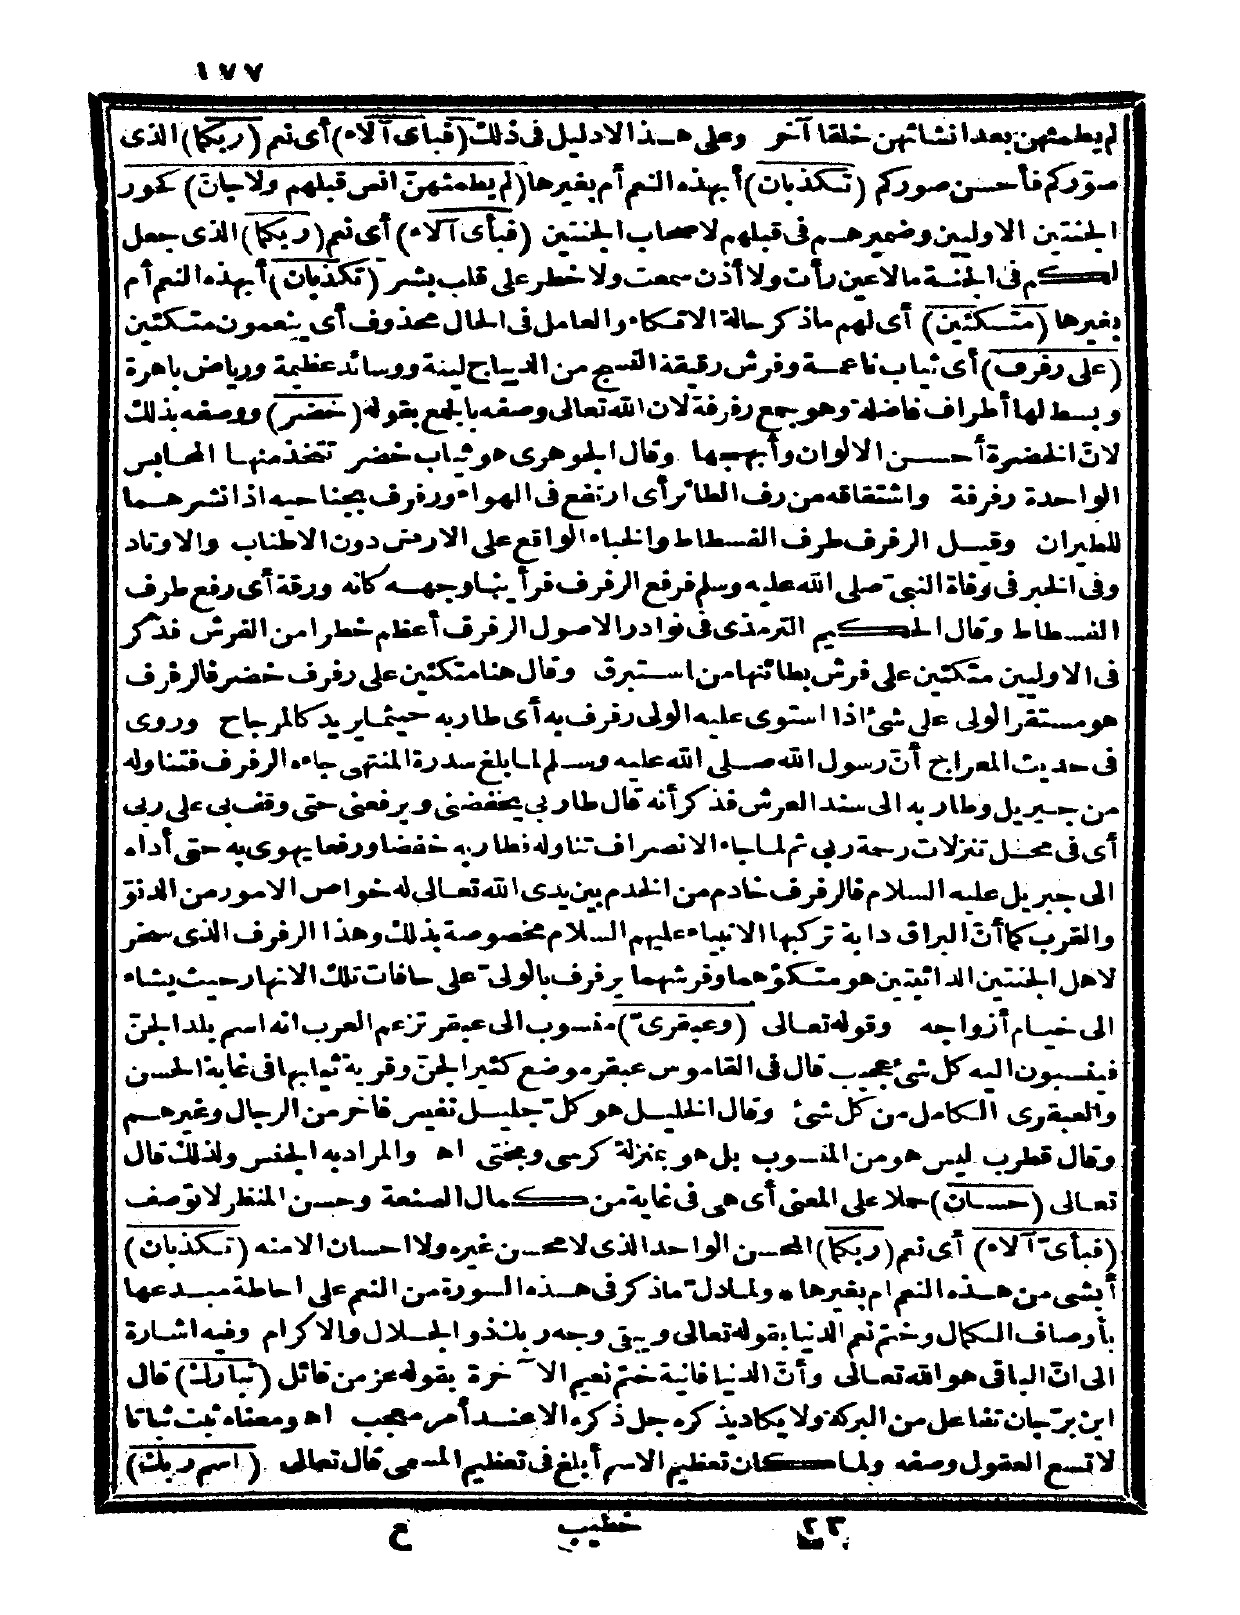 ١٧٧
لم يطمثهن بعد انشائهن خلقا آخر وعلى هذا الادليل فى ذلك (فبأى آلاء) أى نعم (ربكما) الذى
صوّركم فأحسن صوركم (تكذبان) أبهذه النعم أم بغيرها (لم يطمثهنّ انس قبلهم ولا جانّ) كحور
الجنتين الاوليين وضميرهم فى قبلهم لاصحاب الجنتين (فبأى آلاء) أى نعم (ربكما) الذى جعل
لكم فى الجنة مالا عين رأت ولا أذن سمعت ولا خطر على قلب بشر (تكذبان) أبهذه النعم أم
بغيرها (متكئين) أى لهم ما ذكر حالة الاتكاء والعامل فى الحال محذوف أى ينعمون متكئين
(على رفرف) أى ثياب ناعمة وفرش رقيقة النسج من الديباج لينة ووسائد عظيمة ورياض باهرة
وبسط لها أطراف فاضلة وهو جمع رفرفة لان الله تعالى وصفه بالجمع بقوله (خضر) ووصفه بذلك
لانّ الخضرة أحسن الالوان وأبهجها وقال الجوهرى هو ثياب خضر تتخذ منها المحابس
الواحدة رفرفة واشتقاقه من رف الطائر أى ارتفع فى الهواء ورفرف بجناحيه اذا نشرهما
للطيران وقيل الرفرف طرف الفسطاط والخباء الواقع على الارض دون الاطناب والاوتاد
وفى الخبر فى وفاة النبىّ صلى الله عليه وسلم فرفع الرفرف فرأينا وجهه كأنه ورقة أى رفع طرف
الفسطاط وقال الحكيم الترمذى فى نوادر الاصول الرفرف أعظم خطرا من الفرش فذكر
فى الاوليين متكئين على فرش بطائنها من استبرق وقال هنا متكئين على رفرف خضر فالرفرف
هو مستقر الولى على شئ اذا استوى عليه الولى رفرف به أى طار به حيثما يريد كالمرجاح وروى
فى حديث المعراج أنّ رسول الله صلى الله عليه وسلم لما بلغ سدرة المنتهى جاءه الرفرف فتناوله
من جبريل وطار به الى سند العرش فذكر أنه قال طار بى يخفضنى ويرفعنى حتى وقف بى على ربى
أى فى محل تنزلات رحمة ربى ثم لما جاء الانصراف تناوله فطار به خفضا ورفعا يهوى به حتى أداه
الى جبريل عليه السلام فالرفرف خادم من الخدم بين يدى الله تعالى له خواص الامور من الدنوّ
والقرب كما أنّ البراق دابة تركبها الانبياء عليهم السلام مخصوصة بذلك وهذا الرفرف الذى سخر
لاهل الجنتين الدانيتين هو متكؤهما وفرشهما يرفرف بالولىّ على حافات تلك الانهار حيث يشاء
الى خيام أزواجه وقوله تعالى (وعبقرىّ) منسوب الى عبقر تزعم العرب انه اسم بلد الجنّ
فينسبون اليه كل شئ عجيب قال فى القاموس عبقر موضع كثير الجنّ وقرية ثيابها فى غاية الحسن
والعبقرى الكامل من كل شئ وقال الخليل هو كل جليل نفيس فاخر من الرجال وغيرهم
وقال قطرب ليس هو من المنسوب بل هو بمنزلة كرسى وبختى اه والمراد به الجنس ولذلك قال
تعالى (حسان) حملا على المعنى أى هى فى غاية من كمال الصنعة وحسن المنظر لا توصف
(فبأىّ آلاء) أى نعم (ربكما) المحسن الواحد الذى لا محسن غيره ولا احسان الا منه (تكذبان)
أبشى من هذه النعم ام بغيرها * ولما دلّ ما ذكر فى هذه السورة من النعم على احاطة مبدعها
بأوصاف الكمال وختم نعم الدنيا بقوله تعالى ويبقى وجه ربك ذو الجلال والاكرام وفيه اشارة
الى انّ الباقى هو الله تعالى وأنّ الدنيا فانية ختم نعيم الآخرة بقوله عز من قائل (تبارك) قال
ابن برّجان تفاعل من البركة ولا يكاد يذكره جل ذكره الا عند أمر معجب اه ومعناه ثبت ثباتا
لا تسع العقول وصفه ولما كان تعظيم الاسم أبلغ فى تعظيم المسمى قال تعالى (اسم ربك)
٢٣ خطيب ع